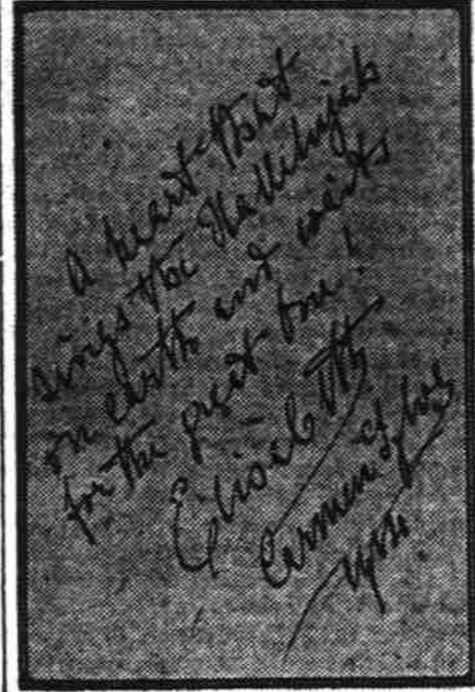 A heart that
sings the Hallelujah
on earth and waits
for the great one!
Elisabeth
Carmen Sylva